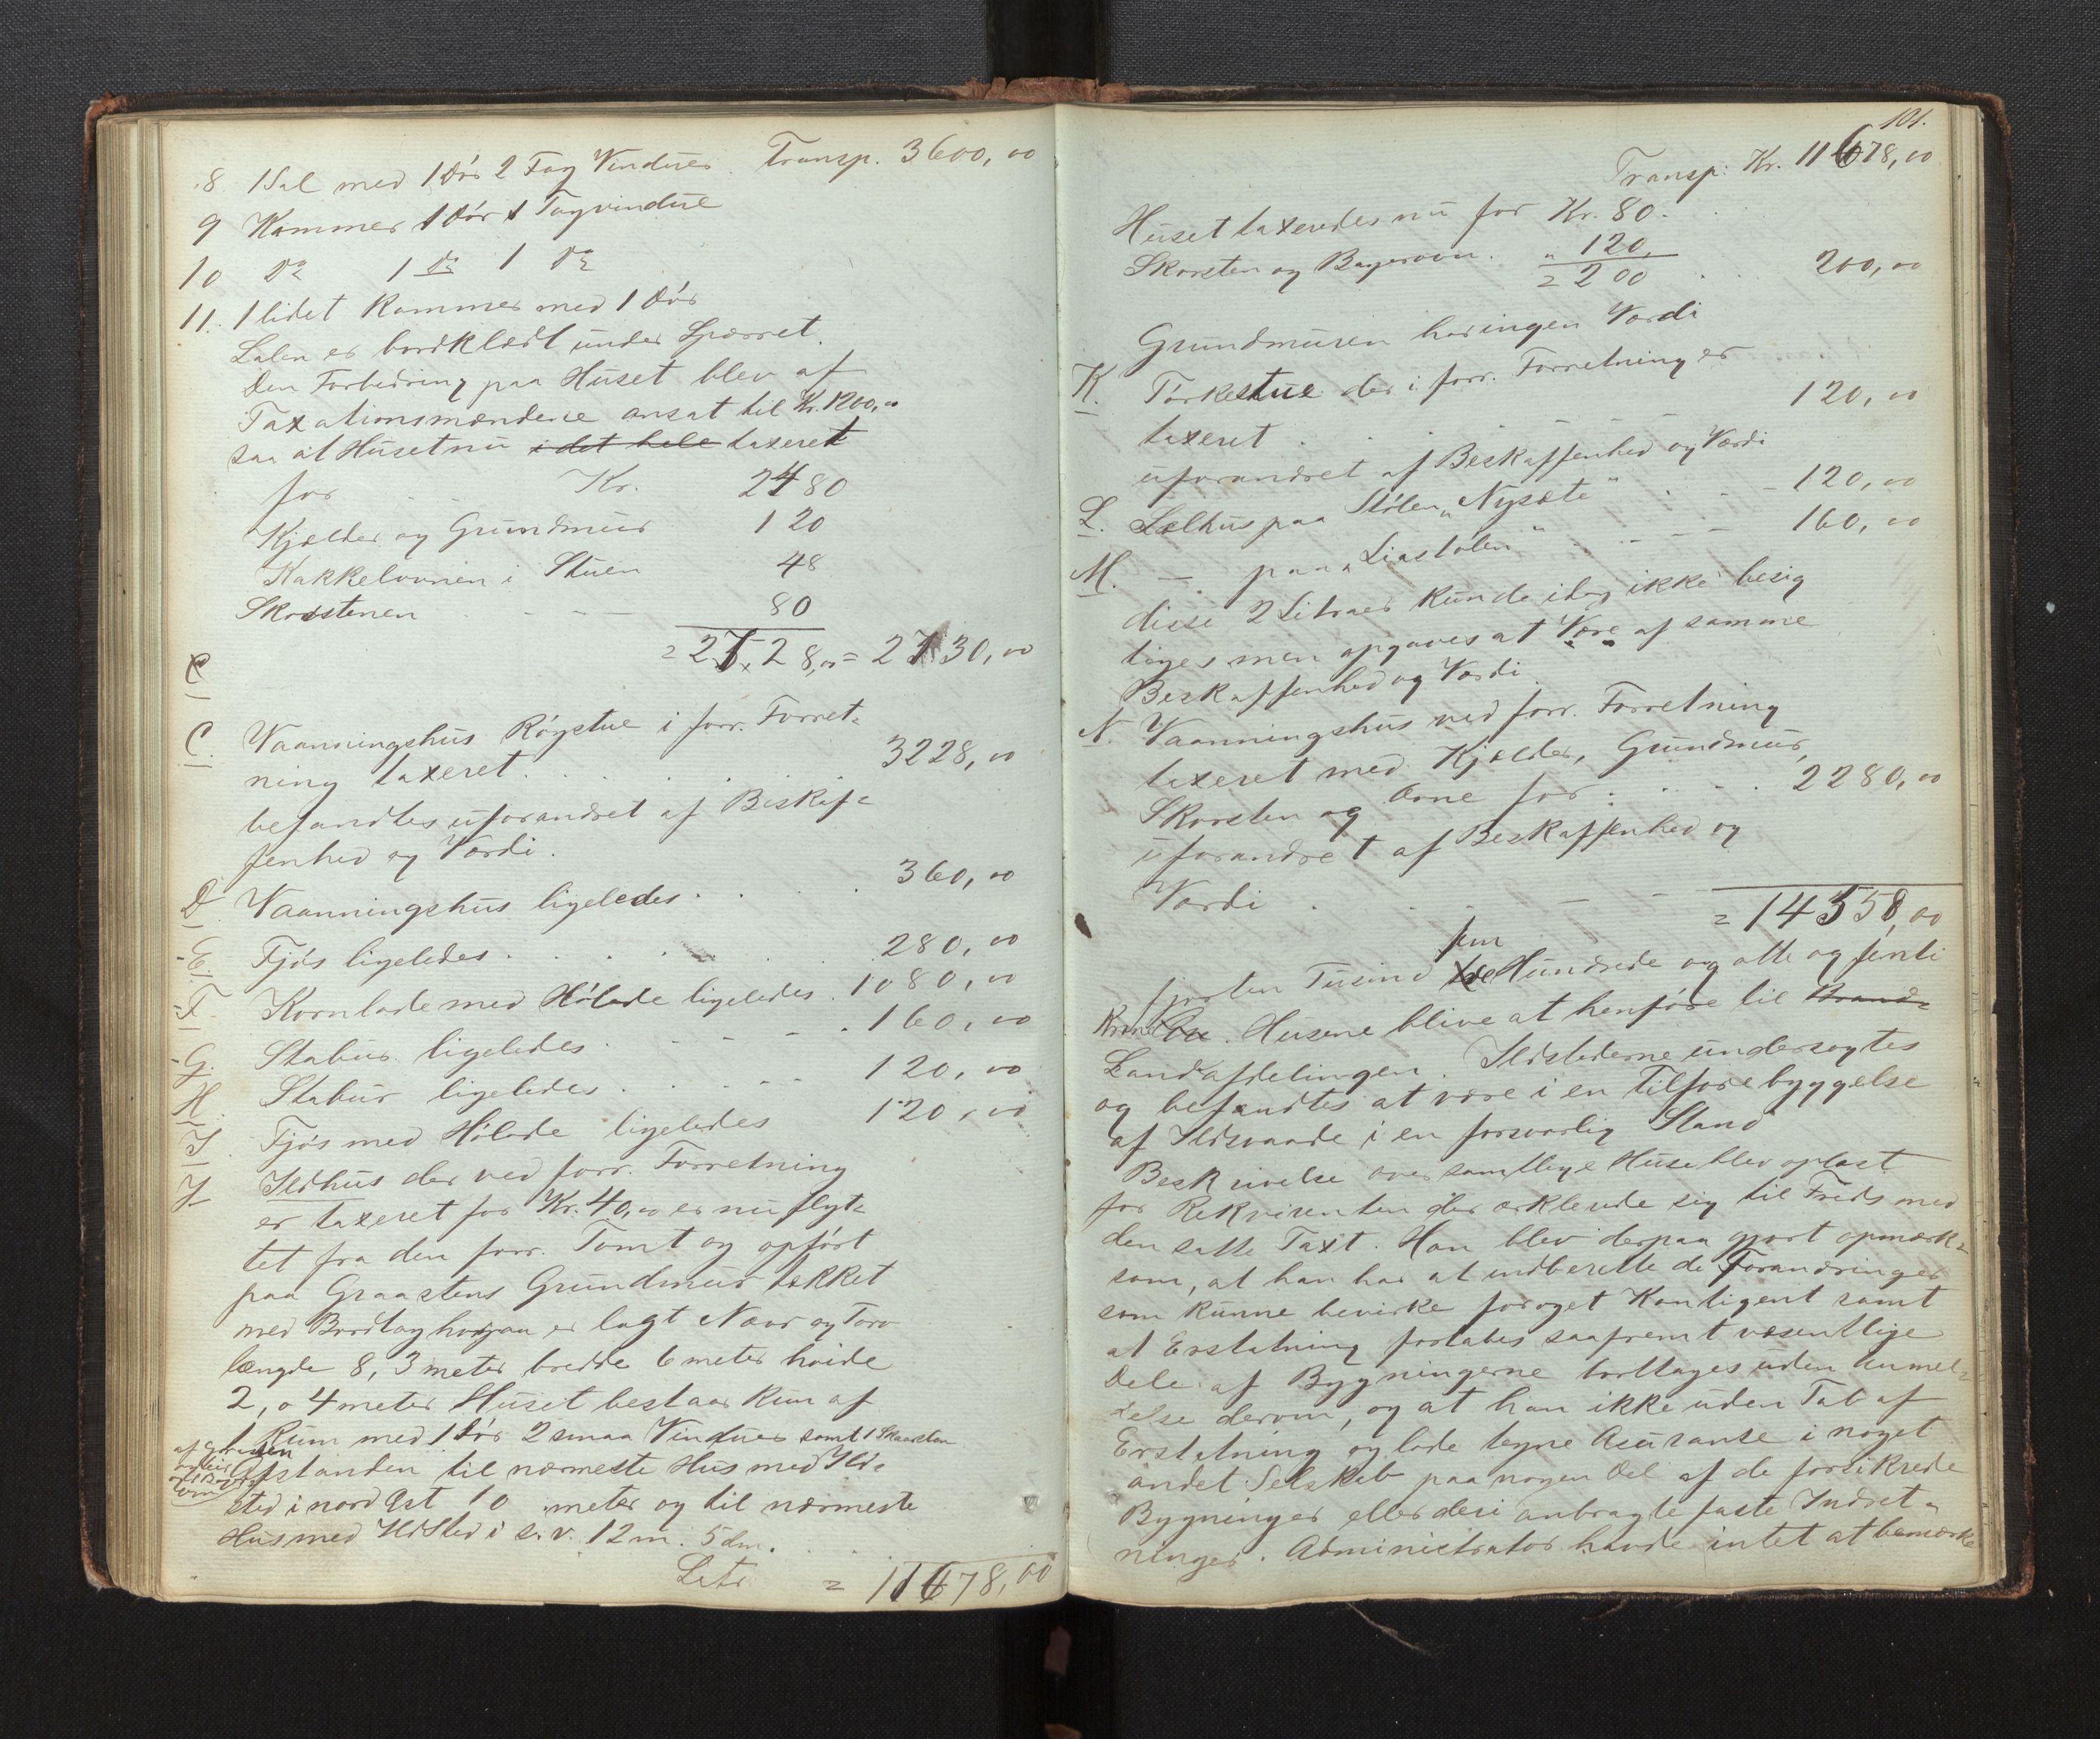 8 1 Sal med 1 Dör 2 Fag Vinduer. Transp. 3600,00
9 Kammer 1 Dör 1 Tagvindue
10 Do 1 Do 1 Do
11. 1 lidet Kammer med 1 Dör
Salen er bordklædt under Sparret.
Den Forbedring paa Huset blev af
Taxationsmændene ansat til Kr. 1200,00
saa at Huset nu i det hele taxeret
for Kr. 2480
Kjælder og Grundmur 120
Kakkelovnen i Stuen 48
Skorstenen 80
= 2728,00 = 2730,00
C
C. Vaanningshus Röystue i forr. Forret-
ning taxeret 3228,00
befandtes uforandret af Beskaf-
fenhed og Værdi.
D. Vaanningshus ligeledes 360,00
E. Fjös ligeledes 280,00
F. Kornlade med Hölade ligeledes 1080,00
G. Stabur ligeledes 160,00
H. Stabur ligeledes 120,00
I Fjös med Hölade ligeledes 120,00
J. Ildhus der ved forr. Forretning
er taxeret for Kr. 40,00 er nu flyt-
tet fra den forr. Tomt og opfört
paa Graastens Grundmur tækket
med Bordtag hvorpaa er lagt Næver og Torv
længde 8,3 meter bredde 6 meter höide
2,04 meter Huset bestaar kun af
1 Rum med 1 Dör 2 smaa Vinduer samt 1 Skorsten
Afstanden til nærmeste Hus med Ild-
sted i nord Øst 10 meter og til nærmeste
Hus med Ildsted i s.v. 12 m. 5 dm.
Latr = 11678,00
101.
Transp: Kr. 11678,00
Huset taxeredes nu for Kr. 80.
Skorsten og Bagerovn. " 120,
= 200 200,00
Grundmuren har ingen Værdi
K. Törkestue der i forr. Forretning er
taxeret 120,00
uforandret af Beskaffenhed og Værdi
L. Sælhus paa Stölen "Nysæte" 120,00
M. — paa "Liastölen" 160,00
disse 2 Litraer kunde idag ikke besig
tiges men opgaves at være af samme
Beskaffenhed og Værdi.
N. Vaanningshus ved forr. Forretning
taxeret med Kjælder, Grundmur,
Skorsten og Ovne for: 2280,00
uforandret af Beskaffenhed og
Værdi
= 14558,00
fem
fjorten Tusind tre Hundrede og otte og femti
Kroner. Husene blive at henföre til Brand-
Landafdelingen. Ildstederne undersøgtes
og befandtes at være i en Tilforebyggelse
af Ildsvaade i en forsvarlig Stand
Beskrivelse over samtlige Huse blev oplæst
for Rekvirenten der erklærede sig til Freds med
den satte Taxt. Han blev derpaa gjort opmærk-
som, at han har at indberette de Forandringer
som kunne bevirke foröget Kontigent samt
at Erstatning fortabes saafremt væsentlige
Dele af Bygningerne borttages uden Anmel-
delse derom, og at han ikke uden Tab af
Erstatning og lade tegne Asuranse i noget
andet Selskab paa nogen Del af de forsikrede
Bygninger eller deri anbragte faste Indret-
ninger. Administrator havde intet at bemærke